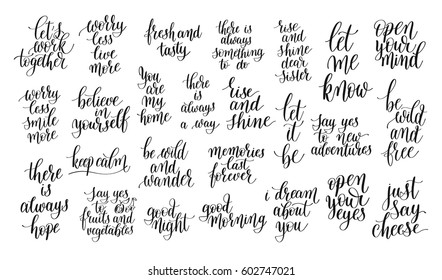 let's
work
together
worry
less
live
more
fresh and
tasty
there is
always
something
to do
rise
and
shine dear
sister
let
me
know
open
your
mind
worry
less
smile
more
believe
in
yourself
You
are
my
home
there
is
always
a way
rise
and
shine
let
it
be
say yes
to new
adventures
be wild
and
free
there
is
always
hope
keep calm
be wild
and
wander
memories
last
forever
say yes
to
fruits and
vegetables
good
night
good
morning
i dream
about
you
open
your
eyes
just
say
cheese
shutterstock.com · 602747021